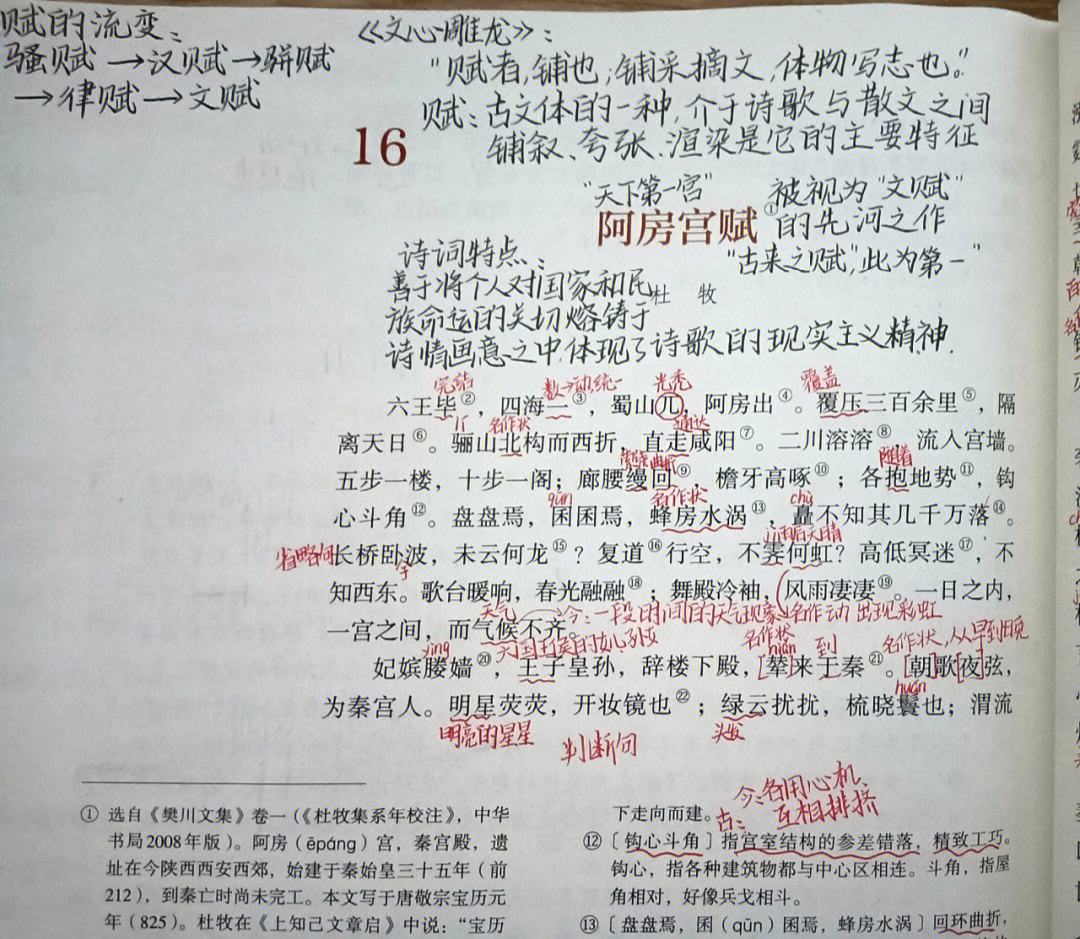 赋的流变：
骚赋→汉赋→骈赋
→律赋→文赋
《文心雕龙》：
"赋者,铺也,铺采摛文,体物写志也。"
赋：古文体的一种,介于诗歌与散文之间
铺叙、夸张、渲染是它的主要特征
16
"天下第一宫"
被视为"文赋"
阿房宫赋①
的先河之作
"古来之赋",此为第一"
诗词特点：
善于将个人对国家和民
杜 牧
族命运的关切熔铸于
诗情画意之中,体现了诗歌的现实主义精神.
完结
数→动,统一
光秃
覆盖
六王毕②，四海一③，蜀山兀，阿房出④。覆压三百余里⑤，隔
名作状
通达
离天日⑥。骊山北构而西折，直走咸阳⑦。二川溶溶⑧，流入宫墙。
萦绕曲折
随着
五步一楼，十步一阁；廊腰缦回⑨，檐牙高啄⑩；各抱地势⑪，钩
qūn
名作状
chù
心斗角⑫。盘盘焉，囷囷焉，蜂房水涡⑬，矗不知其几千万落⑭。
雨后天晴
省略句
长桥卧波，未云何龙⑮？复道⑯行空，不霁何虹？高低冥迷⑰，不
于
知西东。歌台暖响，春光融融⑱；舞殿冷袖，风雨凄凄⑲。一日之内，
天气
今：一段时间的天气现象
名作动 出现彩虹
一宫之间，而气候不齐。
yìng
六国王侯的女儿孙女
名作状
niǎn
到
名作状,从早到晚
妃嫔媵嫱⑳，王子皇孙，辞楼下殿，[辇]来于秦㉑。[朝]歌[夜]弦，
huán
为秦宫人。明星荧荧，开妆镜也㉒；绿云扰扰，梳晓鬟也；渭流
明亮的星星
判断句
头发
今：各用心机、
古：
互相排挤
① 选自《樊川文集》卷一（《杜牧集系年校注》，中华
书局2008年版）。阿房（ēpáng）宫，秦宫殿，遗
址在今陕西西安西郊，始建于秦始皇三十五年（前
212），到秦亡时尚未完工。本文写于唐敬宗宝历元
年（825）。杜牧在《上知己文章启》中说：“宝历
下走向而建。
⑫〔钩心斗角〕指宫室结构的参差错落，精致工巧。
钩心，指各种建筑物都与中心区相连。斗角，指屋
角相对，好像兵戈相斗。
⑬〔盘盘焉，囷（qūn）囷焉，蜂房水涡〕回环曲折，